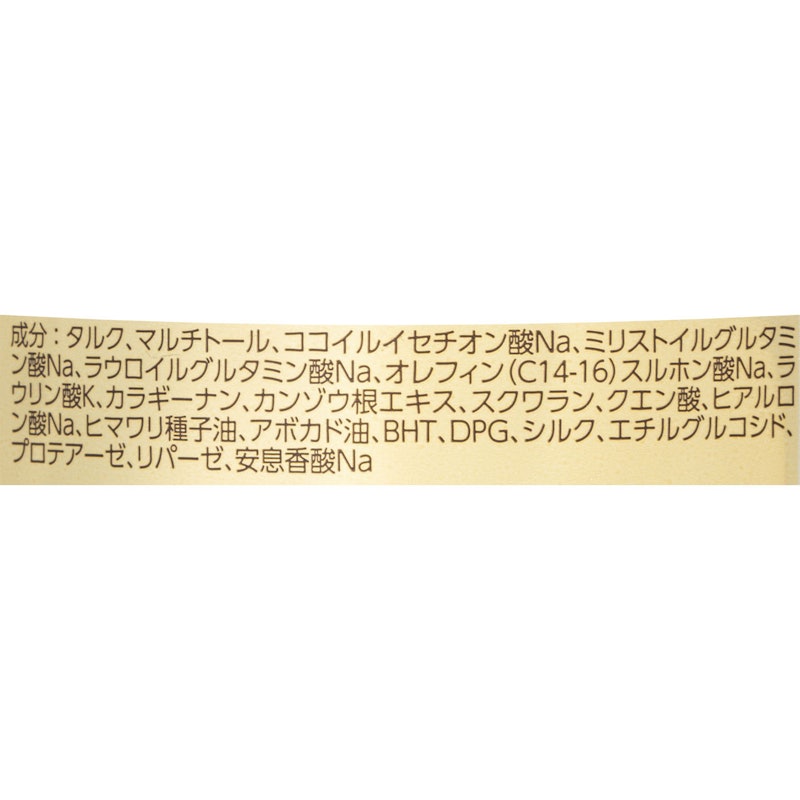 成分：タルク、マルチトール、ココイルイセチオン酸Na、ミリストイルグルタミ
ン酸Na、ラウロイルグルタミン酸Na、オレフィン（C14-16）スルホン酸Na、ラ
ウリン酸K、カラギーナン、カンゾウ根エキス、スクワラン、クエン酸、ヒアルロ
ン酸Na、ヒマワリ種子油、アボカド油、BHT、DPG、シルク、エチルグルコシド、
プロテアーゼ、リパーゼ、安息香酸Na